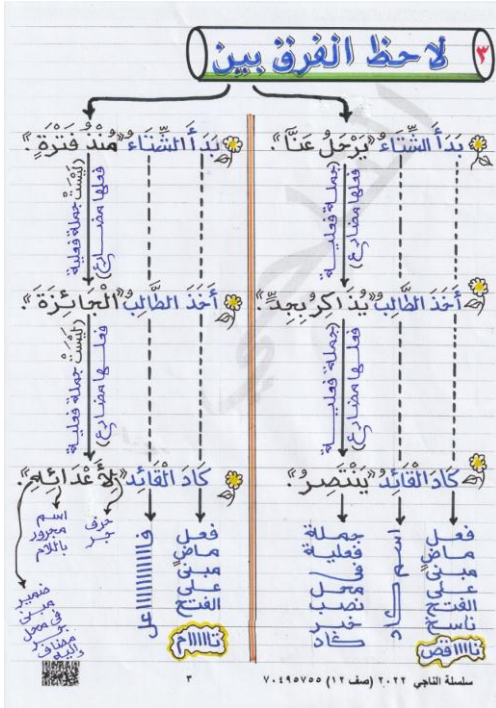 ٣ لاحظ الفرق بين
بَدَأَ الشِّتَاءُ "يَرْحَلُ عَنَّا".
جملة فعلية
(فعلها مضارع)
أَخَذَ الطَّالِبُ "يُذَاكِرُ بِجِدٍّ".
جملة فعلية
(فعلها مضارع)
كَادَ الْقَائِدُ "يَنْتَصِرُ".
فعل
ماضٍ
مبنى
على
الفتح
ناسخ
ناااااقص
اسم كاد
جملة
فعلية
فى
محل
نصب
خبر
كاد
بَدَأَ الشِّتَاءُ "مُنْذُ فَتْرَةٍ".
(لَيْسَتْ جملة فعلية
فعلها مضارع)
أَخَذَ الطَّالِبُ "الْجَائِزَةَ".
(لَيْسَتْ جملة فعلية
فعلها مضارع)
كَادَ الْقَائِدُ "لِأَعْدَائِهِ".
فعل
ماضٍ
مبنى
على
الفتح
تااااام
فااااااااااعل
حرف
جر
اسم
مجرور
باللام
ضمير
مبنى
فى محل
جر
مضاف
إليه
سلسلة الناجي ٢٠٢٢ (صف ١٢) ٧٠٤٩٥٧٥٥
٣